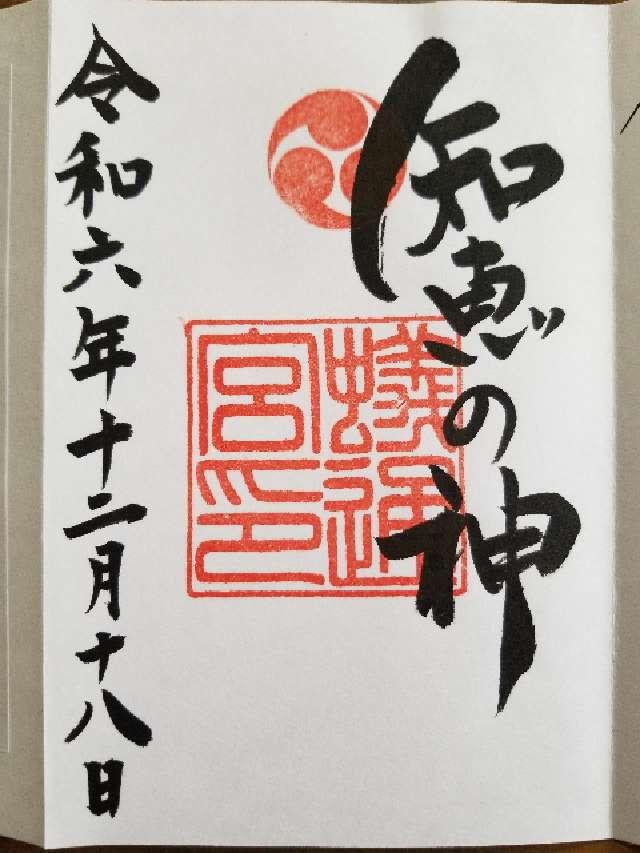 知恵の神
蟻通
宮印
令和六年十二月十八日